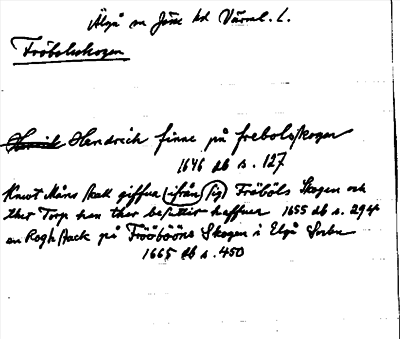 Älgå sn Jösse hd Värml. l.
Fröbolsskogen
Hendrich finne på frebolsskogen
1646 db s. 127
Knut Måns skall giffua ifrån sig Fröböls Skogen och
ther Torp han ther besittir haffuer 1655 db s. 294
en Rogh stack på Frööbööns Skogen i Elgå Sochn
1665 db s. 450